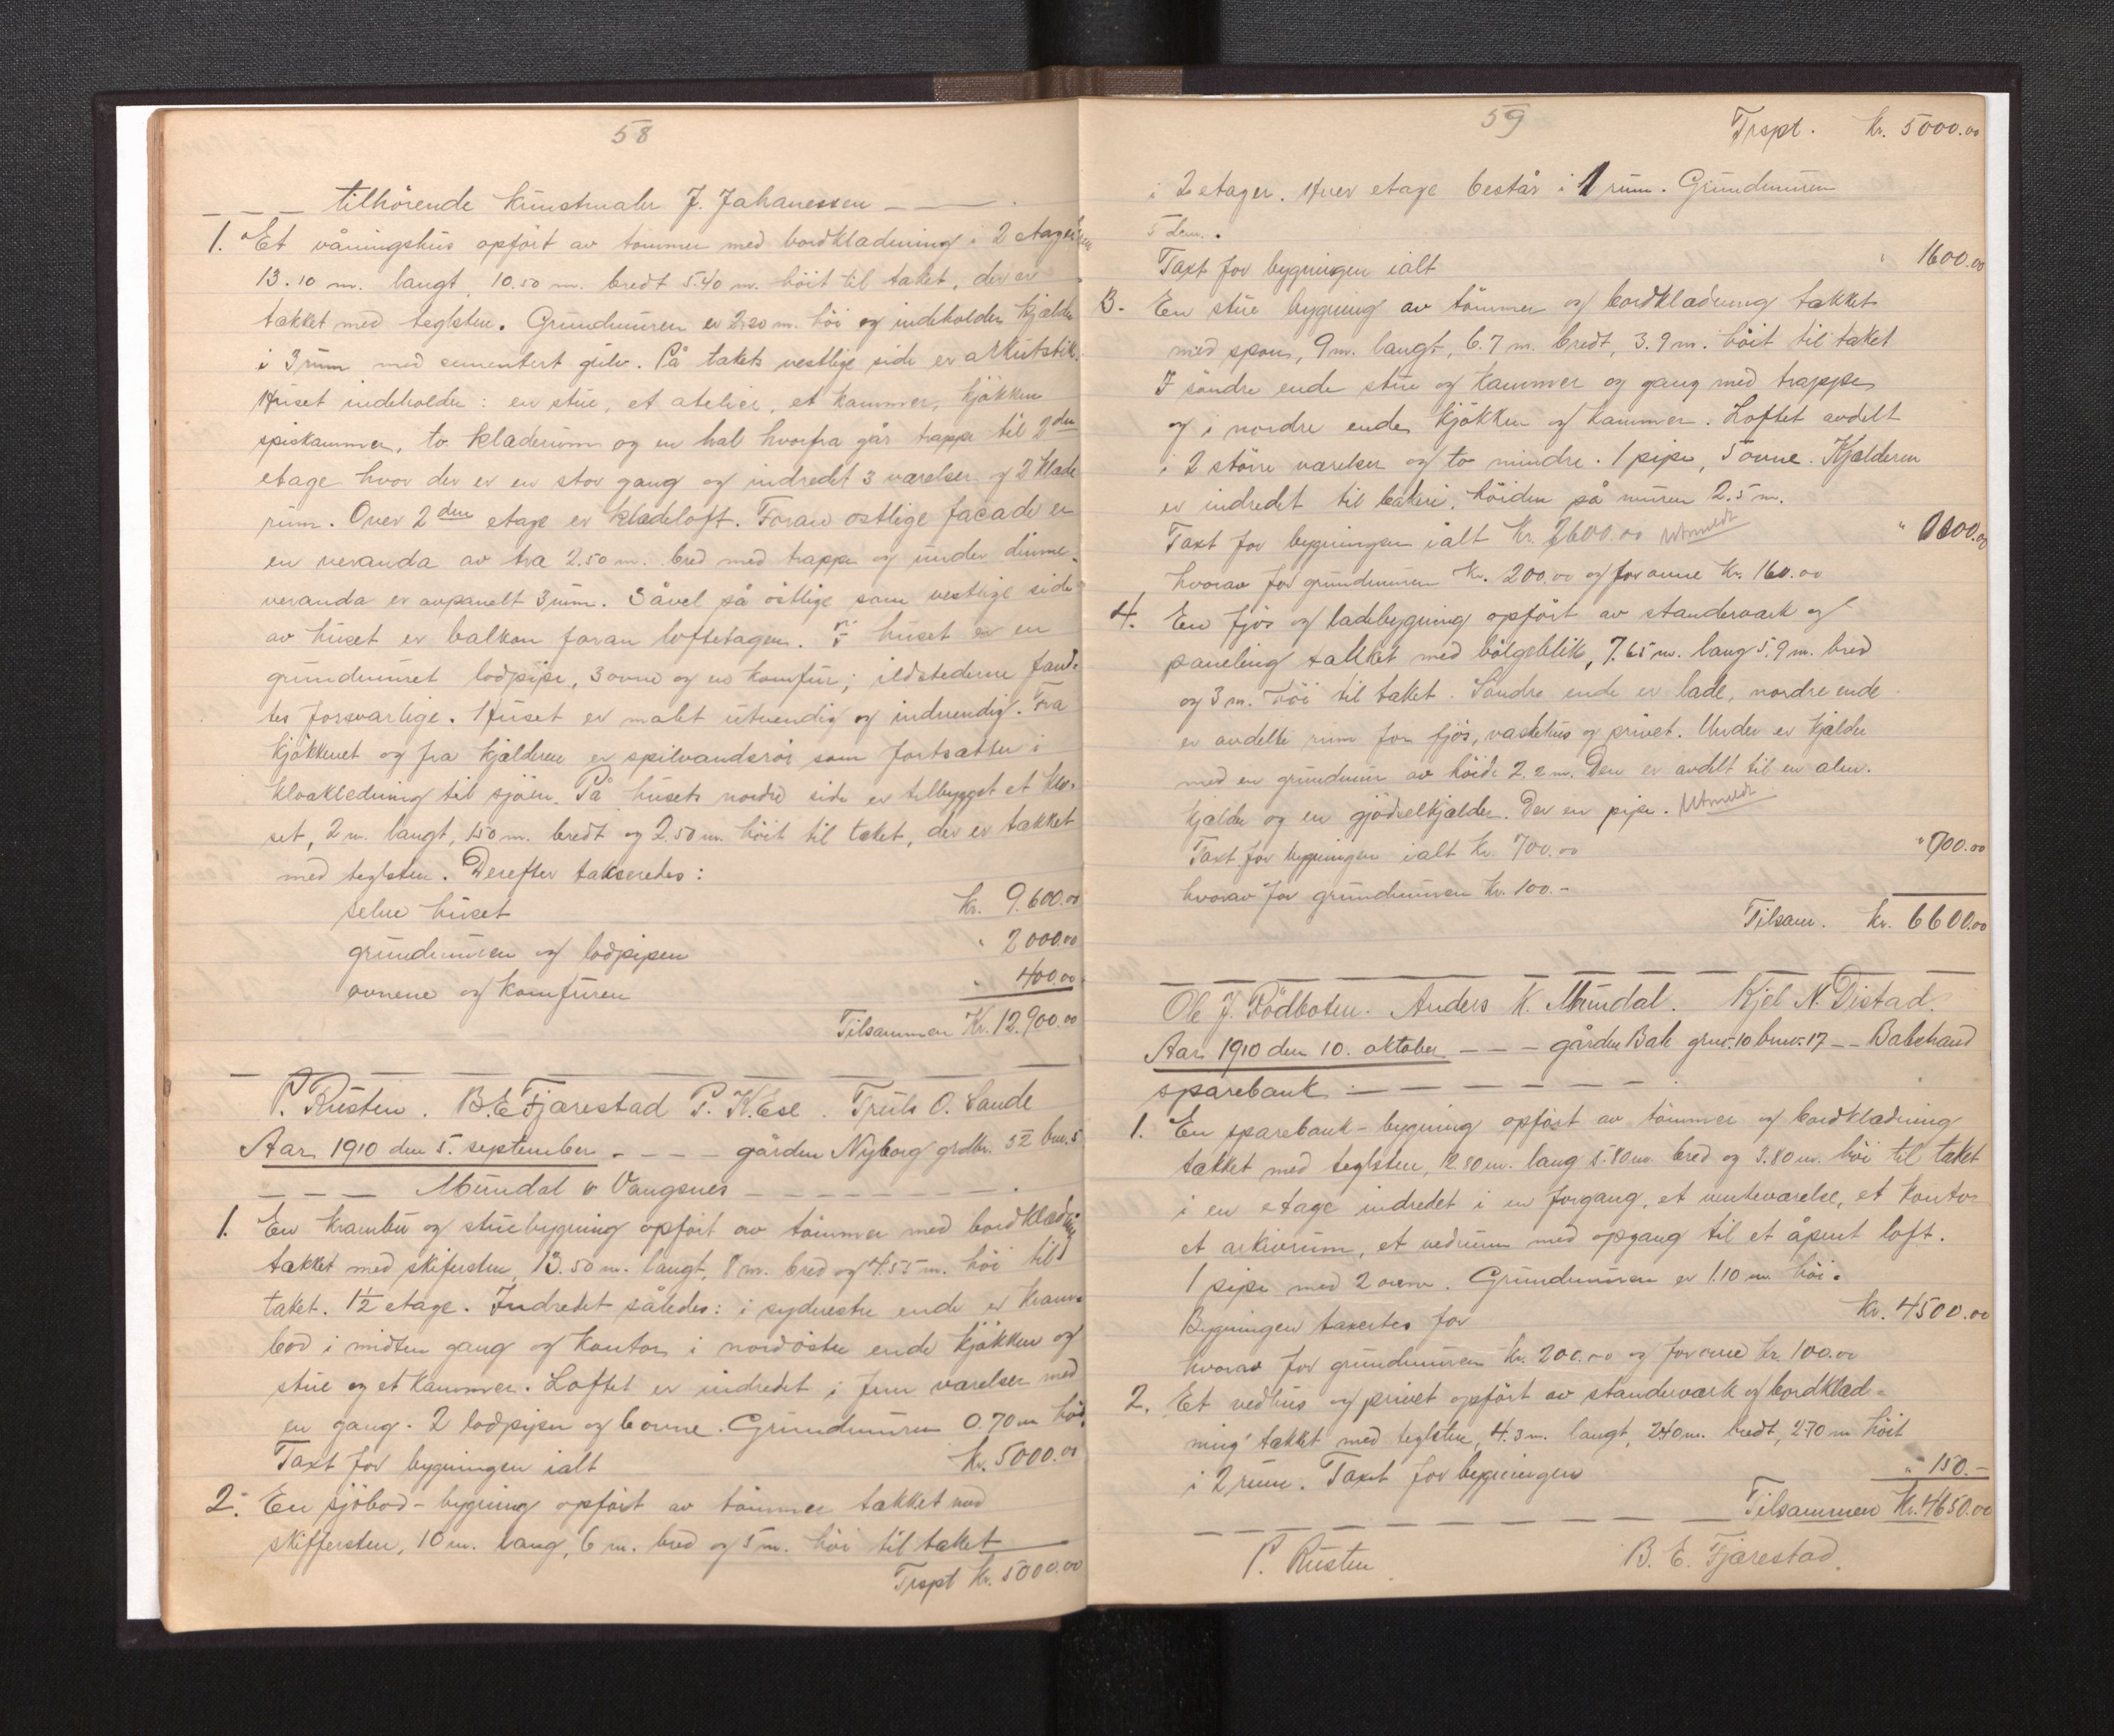 58
— — — tilhörende kunstmaler J. Johanessen — —
1. Et våningshus opfört av tömmer med bordklædning i 2 etager
13.10 m. langt, 10.50 m. bredt 5.40 m. höit til taket, der er
tækket med teglsten. Grundmuren er 2.20 m. höi og indeholder kjælder
i 3 rum med sementert gulv. På takets vestlige side er arkutstik.
Huset indeholder: en stue, et atelier, et kammer, kjökken
spiskammer, to klæderum og en hal hvorfra går trappe til 2den
etage hvor der er en stor gang og indredet 3 værelser og 2 klæde
rum. Over 2den etage er klædeloft. Foran östlige facade er
en veranda av træ 2.50 m. bred med trappe og under denne
veranda er avpanelt 3 rum. Såvel på östlige som vestlige side
av huset er balkon foran loftetagen. I huset er en
grundmuret lodpipe, 3 ovne og en komfur; ildstederne fand-
tes forsvarlige. Huset er malet utvendig og indvendig. Fra
kjökkenet og fra kjælderen er spilvandsrör som fortsætter i
kloakledning til sjöen. På husets nordre side er tilbygget et klo-
set, 2 m. langt, 1.50 m. bredt og 2.50 m. höit til taket, der er tækket
med teglsten. Derefter takseredes:
selve huset kr. 9.600.00
grundmuren og lodpipen " 2000.00
ovnene og komfuren " 400.00
Tilsammen Kr. 12.900.00
P. Rusten. B.E Fjærestad P. K. Ese. Truls O. Sande
Aar 1910 den 5. september - - - - gården Nyborg grdbr. 52 bnr. 5
— — — Mundal & Vangsnes — — — — —
1. En krambu og stuebygning opfört av tömmer med bordklædning
tækket med skifersten, 13.50 m. langt, 8 m. bred og 4.55 m. höi til
taket. 1½ etage. Indredet således: i sydvestre ende er kram-
bod i midten gang og kontor i nordöstre ende kjökken og
stue og et kammer. Loftet er indredet i fem værelser med
en gang. 2 lodpiper og 6 ovne. Grundmuren 0.70 m höi.
Taxt for bygningen ialt kr. 5000.00
2. En sjöbod-bygning opfört av tömmer tækket med
skiffersten, 10 m. lang, 6 m. bred og 5 m. höi til taket
Trspt kr. 5000.00
59
Trspt. kr. 5000.00
i 2 etager. Hver etage består i 1 rum. Grundmuren
Taxt for bygningen ialt " 1600.00
3. En stue bygning av tömmer og bordklædning tækket
med spon, 9 m. langt, 6.7 m. bredt, 3.9 m. höit til taket
I söndre ende stue og kammer og gang med trappe
og i nordre ende kjökken og kammer. Loftet avdelt
i 2 större værelser og to mindre. 1 pipe, 5 ovne. Kjælderen
er indredet til bakeri. höiden på muren 2.5 m.
Taxt for bygningen ialt kr. 2600.00 utmeldt
hvorav for grundmuren kr. 200.00 og for ovne kr. 160.00
4. En fjös og ladebygning opfört av standerværk og
paneling takket med bölgeblik, 7.65 m. lang 5.9 m. bred
og 3 m. höi til taket. Söndre ende er lade, nordre ende
er avdelte rum for fjös, vaskehus og privet. Under er kjælder
med en grundmur av höide 2.2 m. Den er avdelt til en alm.
kjælder og en gjödselkjælder. Der en pipe. Utmeldt
Taxt for bygningen ialt kr. 700.00 " 700.00
hvorav for grundmuren kr. 100.-
Tilsam. kr. 6600.00
Ole J. Rödboten. Anders K. Mundal. Kjel N. Distad.
Aar 1910 den 10. oktober — — — gården Bale gnr. 10 bnr. 17 — — Balestrand
sparebank — — — — — —
1. En sparebank-bygning opfört av tömmer og bordklædning
tækket med teglsten, 12.80 m. lang 5.80 m. bred og 3.80 m. höi til taket
i en etage indredet i en forgang, et venteværelse, et kontor
et arkivrum, et vedrum med opgang til et åpent loft.
1 pipe med 2 ovne. Grundmuren er 1.10 m höi.
Bygningen taxertes for kr. 4500.00
hvorav for grundmuren kr. 200.00 og for ovne kr. 100.00
2. Et vedhus og privet opfört av standerværk og bordklæd-
ning tækket med teglsten, 4.3 m. langt, 2.40 m. bredt, 2.70 m höit
i 2 rum. Taxt for bygningen " 150.-
Tilsammen Kr. 4650.00
P. Rusten B. E. Fjærestad.